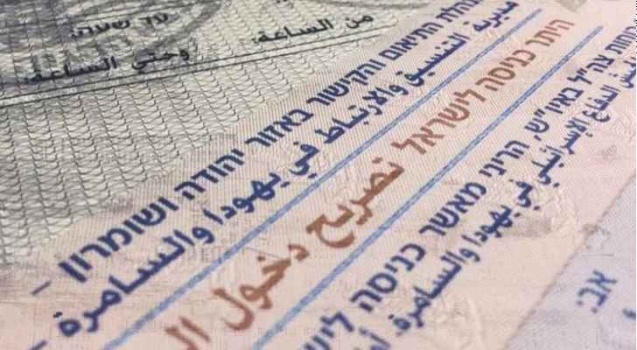 עד שעה:
من الساعة. وحتى الساعة.
מנהלת התיאום והקישור באזור יהודה ושומרון -
مديرية التنسيق والارتباط في يهودا والسامرة -
היתר כניסה לישראל تصريح دخول
צה"ל באיו"ש הריני מאשר כניסה
الدفاع الإسرائيلي في يهودا والسامرة.
אב.